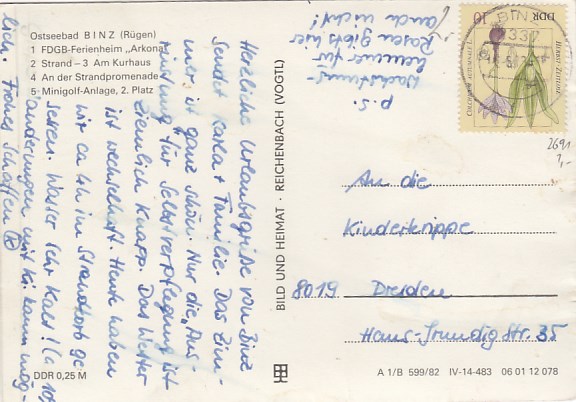 Ostseebad BINZ (Rügen)
1 FDGB-Ferienheim „Arkona"
2 Strand – 3 Am Kurhaus
4 An der Strandpromenade
5 Minigolf-Anlage, 2. Platz
Herzliche Urlaubsgrüße von Binz
sendet + Familie. Das Zim-
mer ist ganz schön. Nur die „Aus-
rüstung" für Selbstverpflegung ist
ziemlich knapp. Das Wetter
ist wechselhaft. Heute haben
wir ca 1h im Strandkorb ge-
sessen. Wasser sehr kalt! (ca 10°
änderungen mit Ki. kann mög-
lich. Frohes Schaffen
P.S.
Wachstums-
hemmer für
Rosen gibts hier
(auch nicht!
BILD UND HEIMAT · REICHENBACH (VOGTL)
10
DDR
BINZ
2337
2691
1,-
An die
Kinderkrippe
8019 Dresden
Hans-Grundig Str. 35
DDR 0,25 M
A 1/B 599/82 IV-14-483 06 01 12 078